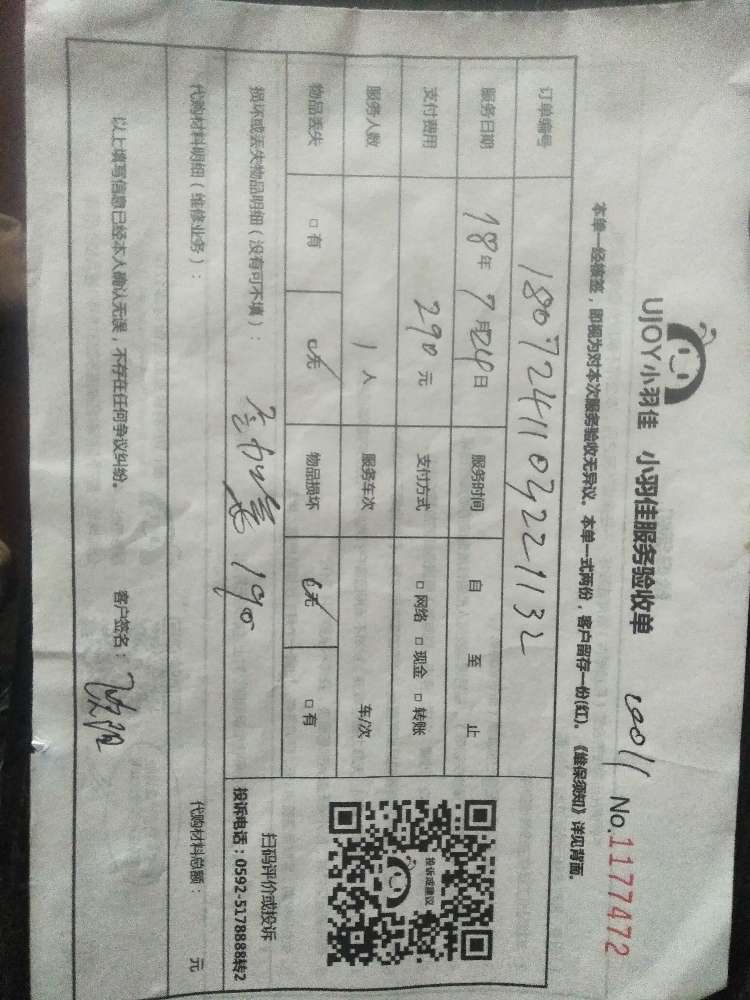 UJOY小羽佳 小羽佳服务验收单 No.1177472
本单一经接签，即视为对本次服务验收无异议。本单一式两份，客户留存一份(红)。《维保须知》详见背面。
订单编号 18072411034221132
服务日期 18年7月24日 服务时间 自 至 止
支付费用 290元 支付方式 □网络 □现金 □转账
服务人数 1人 服务车次 车/次
物品丢失 □有 □无 物品损坏 □无 □有
损坏或丢失物品明细（没有可不填）： 190
代购材料明细（维修业务）： 代购材料总额： 元
以上填写信息已经本人确认无误，不存在任何争议纠纷。 客户签名：
投诉或建议
扫码评价或投诉
投诉电话：0592-5178888转2